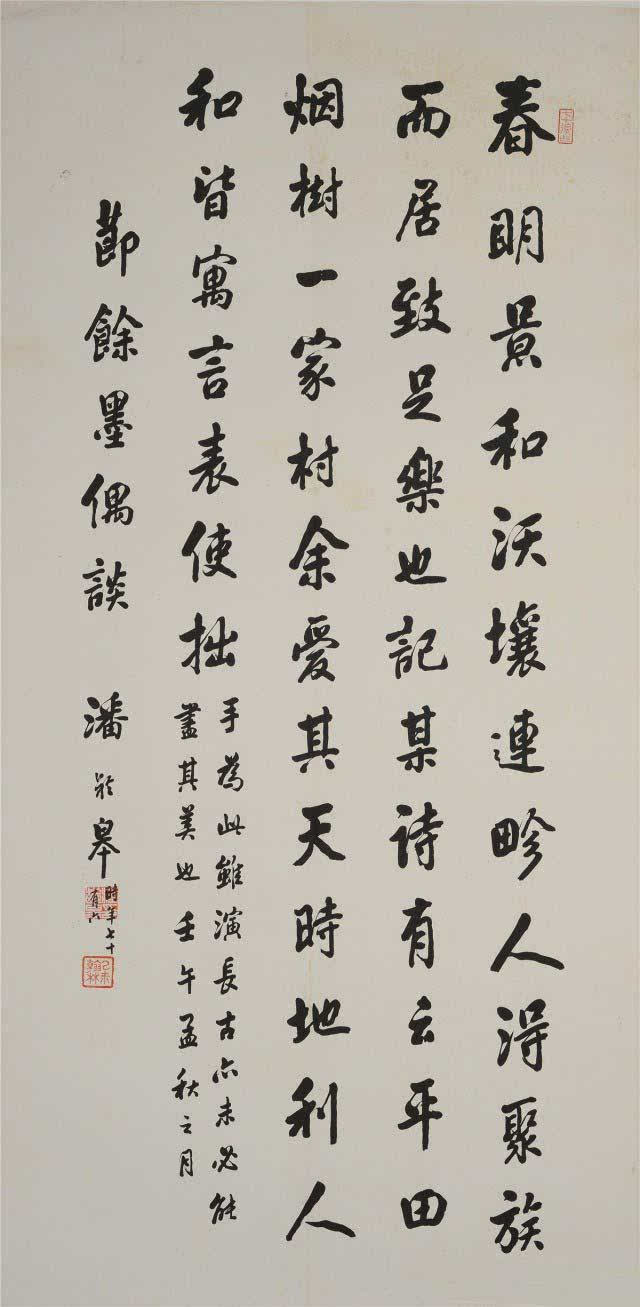 春明景和沃壤連畛人得聚族
而居致足樂也記某詩有云平田
烟樹一家村余愛其天時地利人
和皆寓言表使拙
手為此雖演長古亦未必能
盡其美也壬午孟秋之月
節餘墨偶談
潘齡皋
時年七十
有六